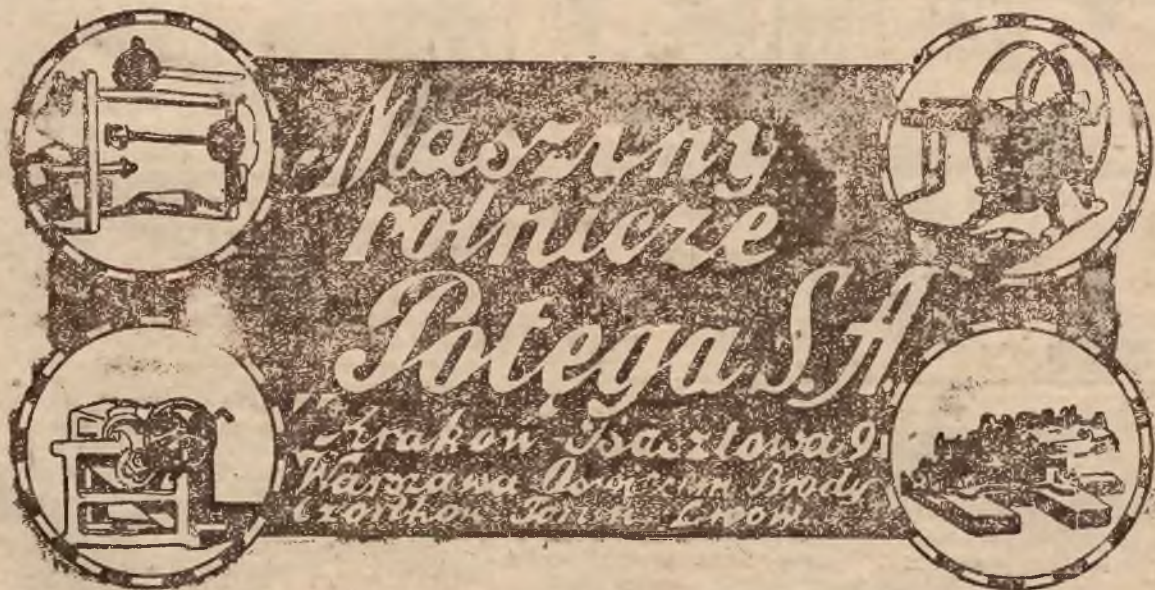 Maszyny
rolnicze
Potęga S.A.
Kraków Basztowa 9
Warszawa Oświęcim Brody
Czortków Toruń Lwów